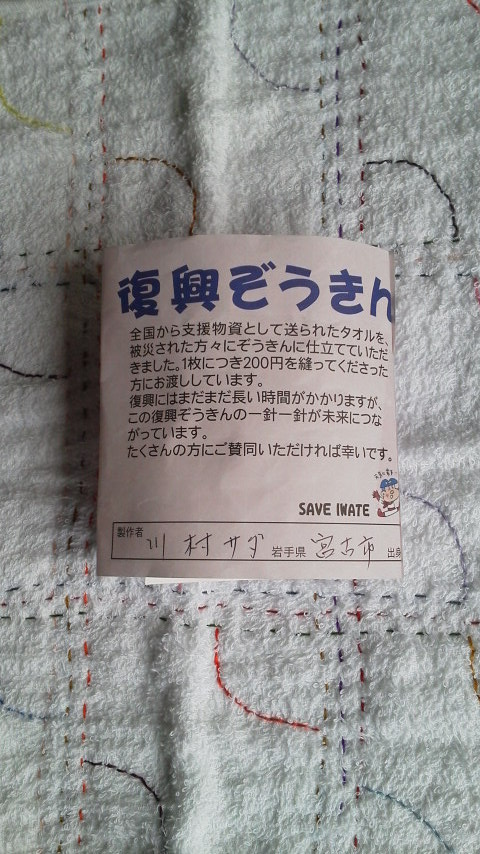 復興ぞうきん
全国から支援物資として送られたタオルを、
被災された方々にぞうきんに仕立てていただ
きました。1枚につき200円を縫ってくださった
方にお渡ししています。
復興にはまだまだ長い時間がかかりますが、
この復興ぞうきんの一針一針が未来につな
がっています。
たくさんの方にご賛同いただければ幸いです。
SAVE IWATE
製作者 川村サダ 岩手県 宮古市 出身